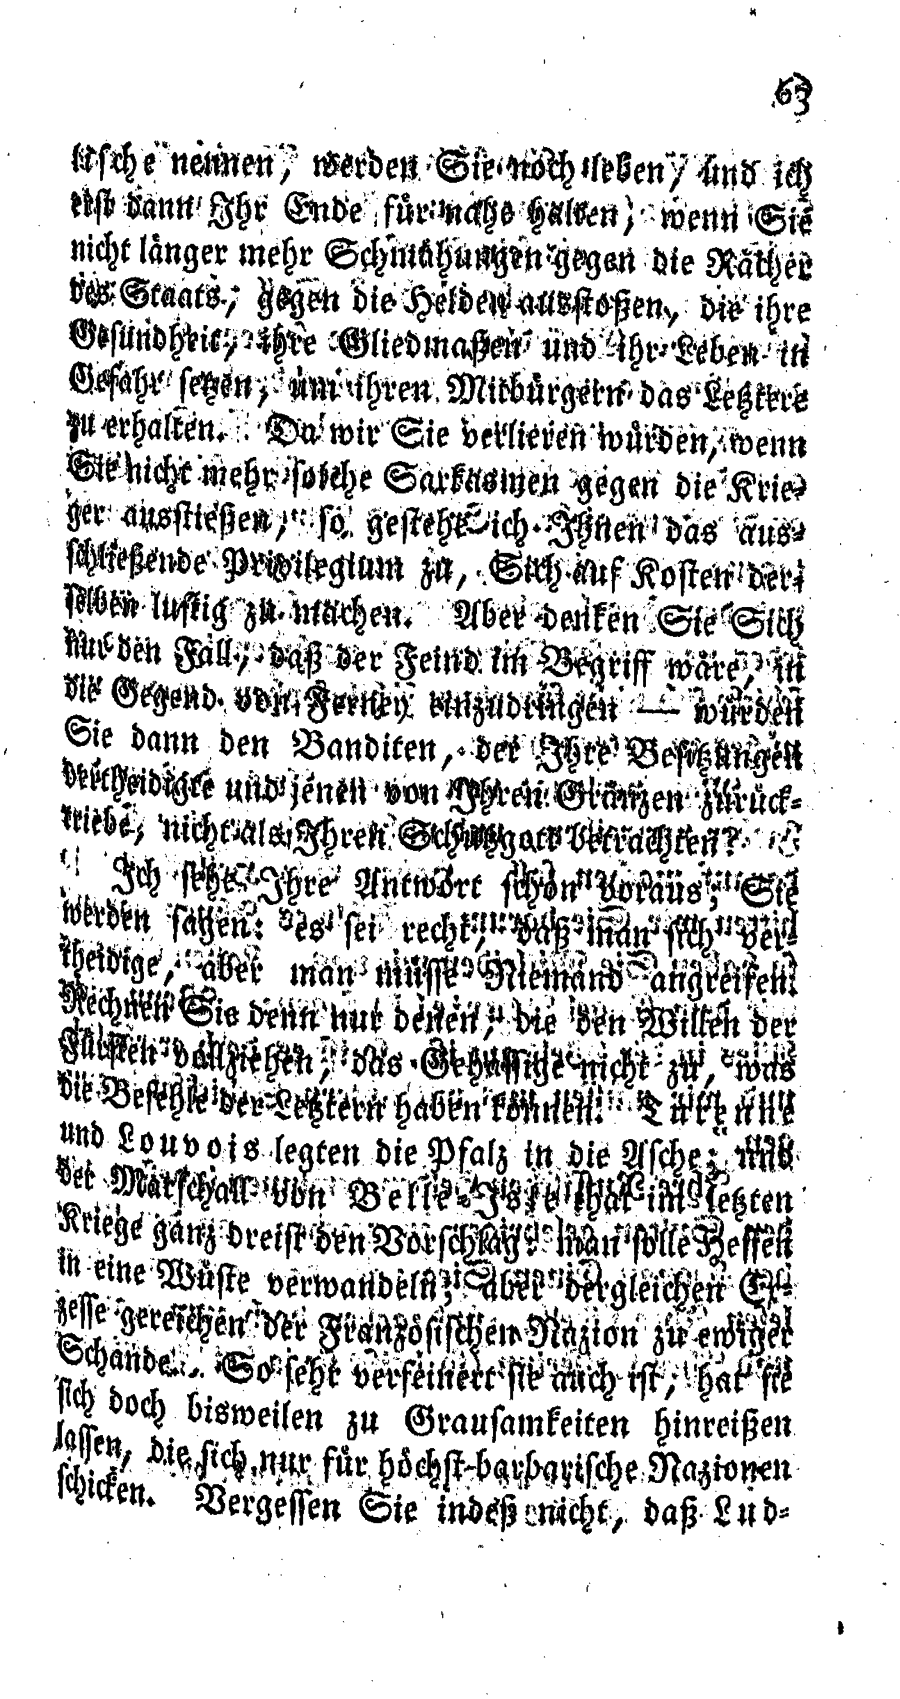 63
tische nennen, werden Sie noch leben, und ich
erst dann Ihr Ende für nahe halten, wenn Sie
nicht länger mehr Schmähungen gegen die Räther
des Staats, gegen die Helden ausstoßen, die ihre
Gesundheit, ihre Gliedmaßen und ihr Leben in
Gefahr setzen, um ihren Mitbürgern das Letztere
zu erhalten. Da wir Sie verlieren würden, wenn
Sie nicht mehr solche Sarkasmen gegen die Krie-
ger ausstießen, so gestehe ich Ihnen das aus-
schließende Privilegium zu, Sich auf Kosten der-
selben lustig zu machen. Aber denken Sie Sich
nur den Fall, daß der Feind im Begriff wäre, in
die Gegend von Ferney einzudringen — würden
Sie dann den Banditen, der Ihre Besitzungen
vertheidigte und jenen von Ihren Gränzen zurück-
triebe, nicht als Ihren Schutzgott betrachten?
Ich sehe Ihre Antwort schon voraus; Sie
werden sagen: es sei recht, daß man sich ver-
theidige, aber man müsse Niemand angreifen.
Rechnen Sie denn nur denen, die den Willen der
Fürsten vollziehen, das Gehässige nicht zu, was
die Befehle der Letztern haben können. Türenne
und Louvois legten die Pfalz in die Asche; und
der Marschall von Belle-Isle that im letzten
Kriege ganz dreist den Vorschlag: man solle Hessen
in eine Wüste verwandeln; aber dergleichen Ex-
zesse gereichen der Französischen Nazion zu ewiger
Schande. So sehr verfeinert sie auch ist, hat sie
sich doch bisweilen zu Grausamkeiten hinreißen
lassen, die sich nur für höchst-barbarische Nazionen
schicken. Vergessen Sie indeß nicht, daß Lud-